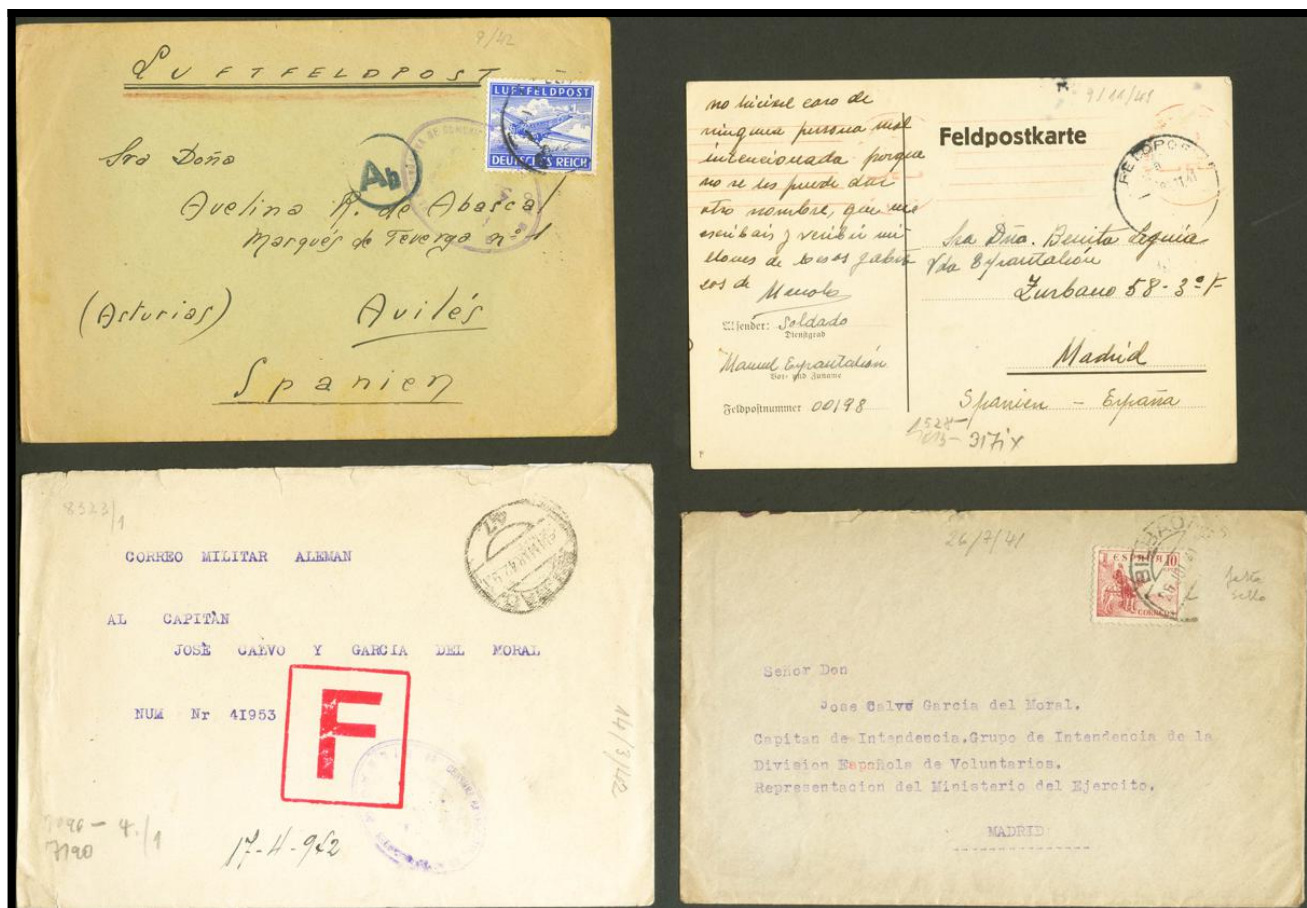 9/42
LUFTFELDPOST
LUFTFELDPOST
DEUTSCHES REICH
Ab
Sra Doña
Avelina R. de Abascal
Marqués de Teverga nº 1
(Asturias) Avilés
Spanien
9/11/41
no hicisei caso de
ninguna persona mal
intencionada porque
no se les puede dar
otro nombre, que me
escribais y recibir mi
llones de besos y abra
zos de Manolo
Absender: Soldado
Dienstgrad
Manuel Espantaleón
Vor- und Zuname
Feldpostnummer 00198
Feldpostkarte
FELDPOST
Sra Dña. Benita Leguia
Vda Espantaleón
Zurbano 58-3º
Madrid
Spanien - España
317iX
8523/1
CORREO MILITAR ALEMAN
AL CAPITÀN
JOSÈ CALVO Y GARCIA DEL MORAL
NUM Nr 4I953
F
14/3/42
7190
17-4-942
26/7/41
ESPAÑA 10
CORREOS
BILBAO
falta
sello
Señor Don
Jose Calvo Garcia del Moral.
Capitan de Intendencia.Grupo de Intendencia de la
Division Española de Voluntarios.
Representacion del Ministerio del Ejercito.
MADRID